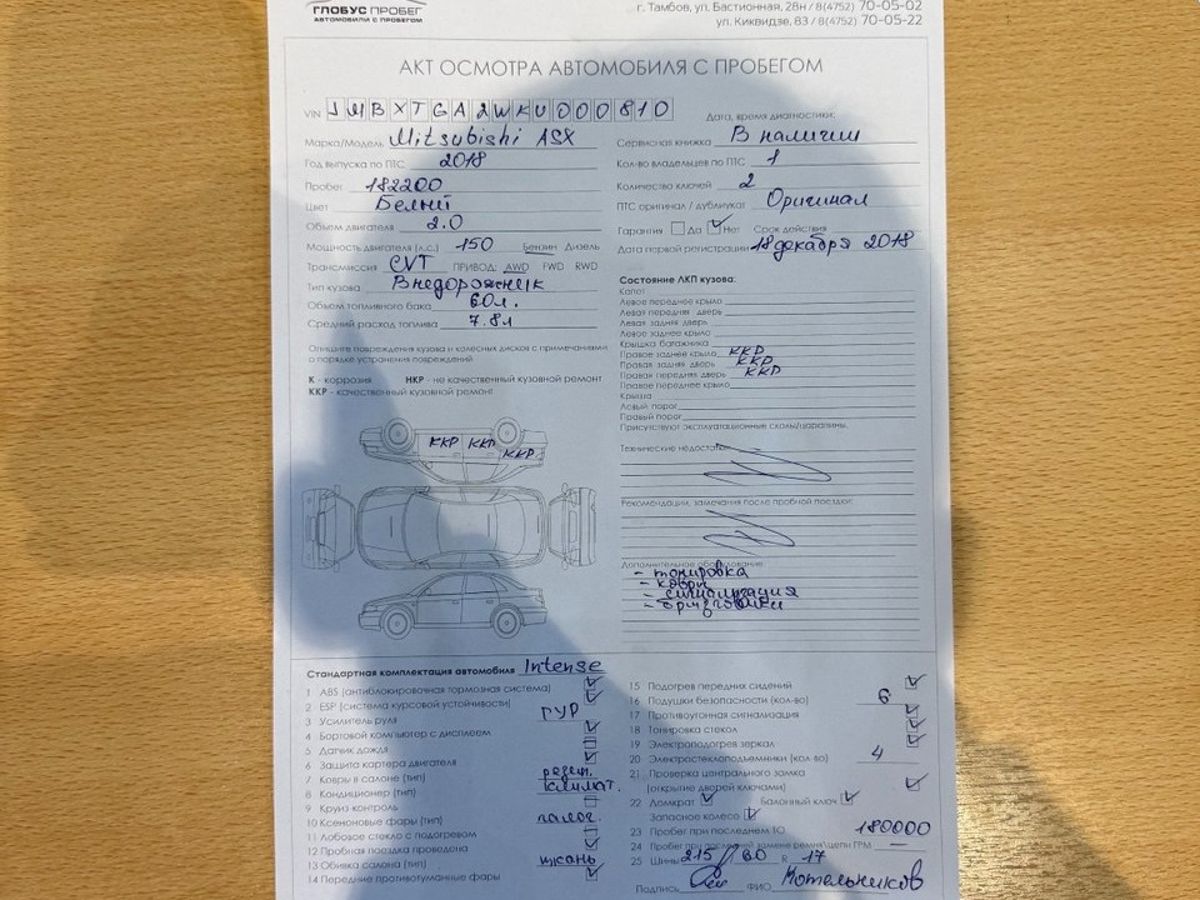 ГЛОБУС ПРОБЕГ
АВТОМОБИЛИ С ПРОБЕГОМ
г. Тамбов, ул. Бастионная, 28н / 8(4752) 70-05-02
ул. Киквидзе, 83 / 8(4752) 70-05-22
АКТ ОСМОТРА АВТОМОБИЛЯ С ПРОБЕГОМ
VIN JMBXTGA2WKU000810
Марка/Модель Mitsubishi ASX
Год выпуска по ПТС 2018
Пробег 182200
Цвет Белый
Объем двигателя 2.0
Мощность двигателя (л.с.) 150 Бензин Дизель
Трансмиссия CVT ПРИВОД: AWD FWD RWD
Тип кузова Внедорожник
Объем топливного бака 60л.
Средний расход топлива 7.8л
Опишите повреждения кузова и колесных дисков с примечаниями
о порядке устранения повреждений
К - коррозия НКР - не качественный кузовной ремонт
ККР - качественный кузовной ремонт
ККР ККР ККР
Дата, время диагностики:
Сервисная книжка В наличии
Кол-во владельцев по ПТС 1
Количество ключей 2
ПТС оригинал / дубликат Оригинал
Гарантия Да Нет Срок действия
Дата первой регистрации 18 декабря 2018
Состояние ЛКП кузова:
Капот
Левое переднее крыло
Левая передняя дверь
Левая задняя дверь
Левое заднее крыло
Крышка багажника
Правое заднее крыло ККР
Правая задняя дверь ККР
Правая передняя дверь ККР
Правое переднее крыло
Крыша
Левый порог
Правый порог
Присутствуют эксплуатационные сколы/царапины.
Технические недостатки
Рекомендации, замечания после пробной поездки:
Дополнительное оборудование
- тонировка
- ковры
- сигнализация
- брызговики
Стандартная комплектация автомобиля Intense
1 ABS (антиблокировочная тормозная система)
2 ESP (система курсовой устойчивости)
3 Усилитель руля ГУР
4 Бортовой компьютер с дисплеем
5 Датчик дождя
6 Защита картера двигателя
7 Ковры в салоне (тип) резин.
8 Кондиционер (тип) климат.
9 Круиз контроль
10 Ксеноновые фары (тип) галог.
11 Лобовое стекло с подогревом
12 Пробная поездка проведена
13 Обивка салона (тип) ткань
14 Передние противотуманные фары
15 Подогрев передних сидений
16 Подушки безопасности (кол-во) 6
17 Противоугонная сигнализация
18 Тонировка стекол
19 Электроподогрев зеркал
20 Электростеклоподъемники (кол-во) 4
21 Проверка центрального замка
(открытие дверей ключами)
22 Домкрат Балонный ключ
Запасное колесо
23 Пробег при последнем ТО 180000
24 Пробег при последней замене ремня\цепи ГРМ —
25 Шины 215 / 60 R 17
Подпись ФИО Котельников